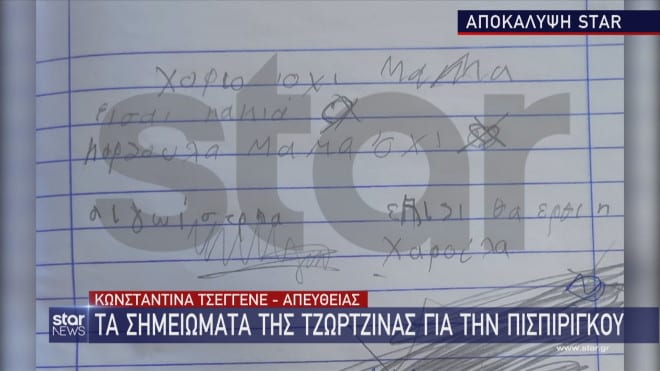 ΑΠΟΚΑΛΥΨΗ STAR
χοριο όχι μαμα
εισαι κακιά
μαμα όχι
star
επισι θα ερθι η
Χαρούλα
ΚΩΝΣΤΑΝΤΙΝΑ ΤΣΕΓΓΕΝΕ - ΑΠΕΥΘΕΙΑΣ
star NEWS
ΤΑ ΣΗΜΕΙΩΜΑΤΑ ΤΗΣ ΤΖΩΡΤΖΙΝΑΣ ΓΙΑ ΤΗΝ ΠΙΣΠΙΡΙΓΚΟΥ
www.star.gr